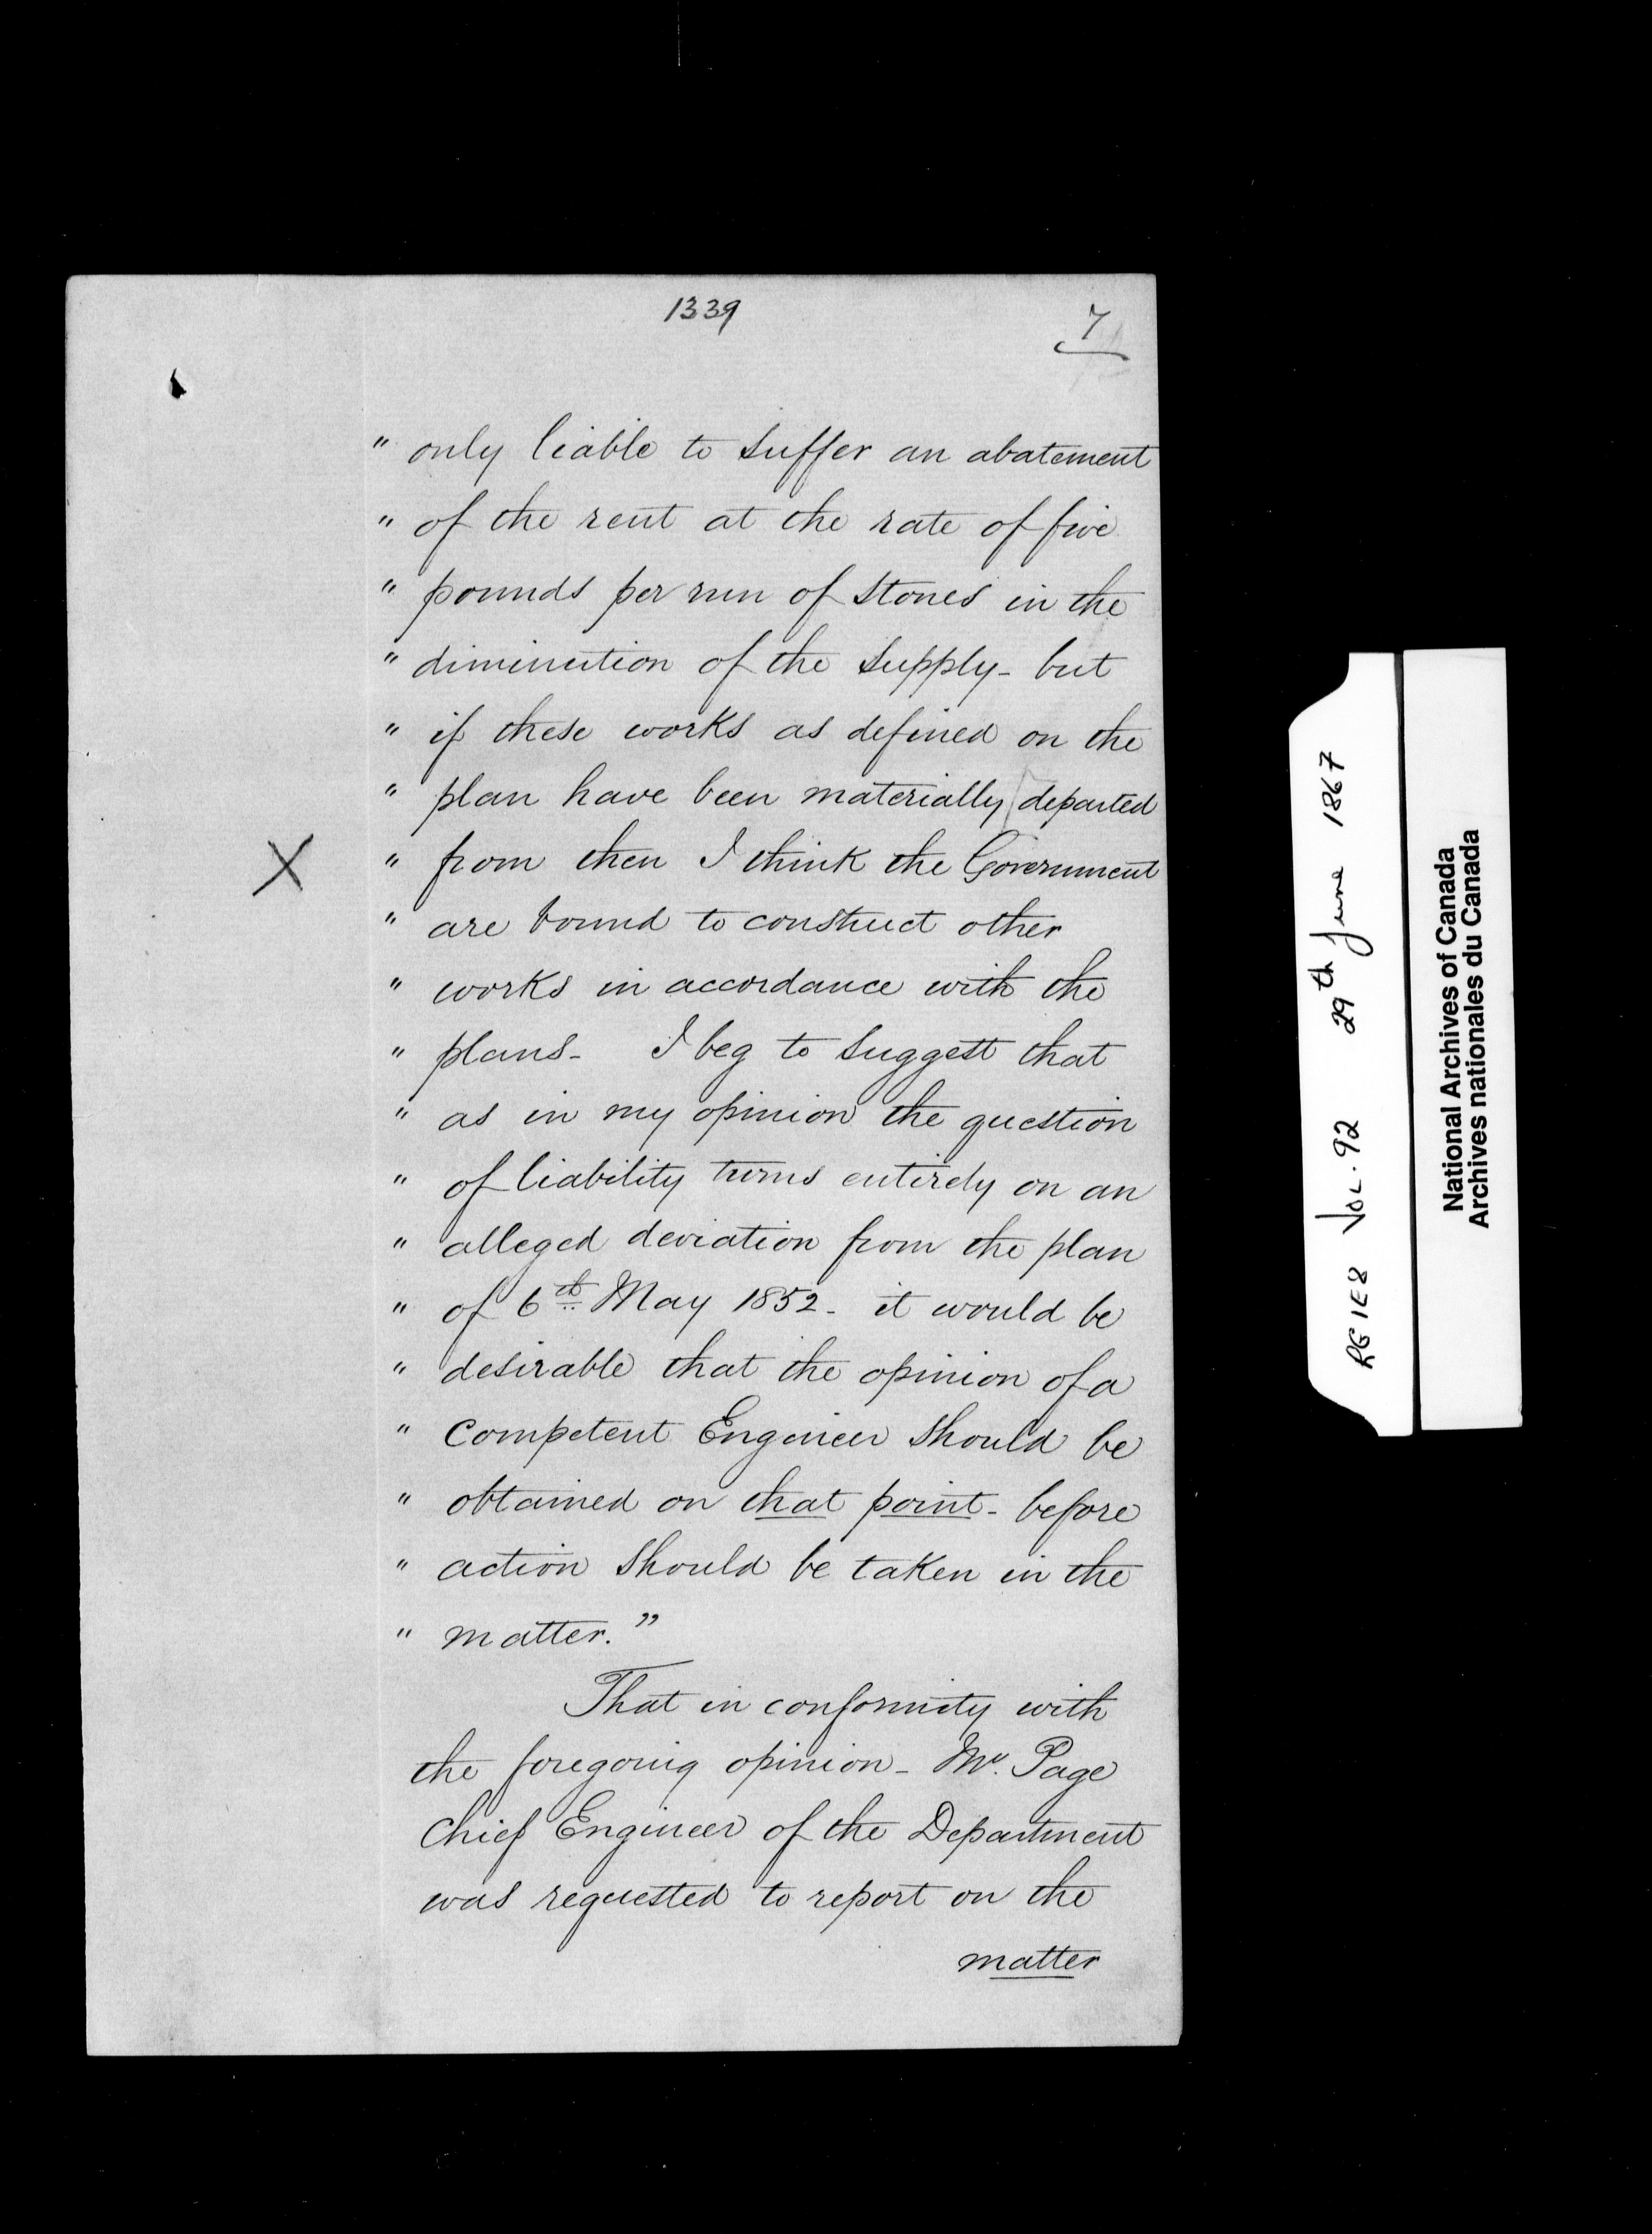 1339
7
" only liable to suffer an abatement
" of the rent at the rate of five
" pounds per run of stones in the
" diminution of the supply - but
" if these works as defined on the
" plan have been materially departed
X
" from then I think the Government
" are bound to construct other
" works in accordance with the
" plans - I beg to suggest that
" as in my opinion the question
" of liability turns entirely on an
" alleged deviation from the plan
" of 6th May 1852 - it would be
" desirable that the opinion of a
" competent Engineer should be
" obtained on that point - before
" action should be taken in the
" matter. "
That in conformity with
the foregoing opinion - Mr. Page
Chief Engineer of the Department
was requested to report on the
matter
RG 1E8 VOL. 92 29th June 1867
National Archives of Canada
Archives nationales du Canada